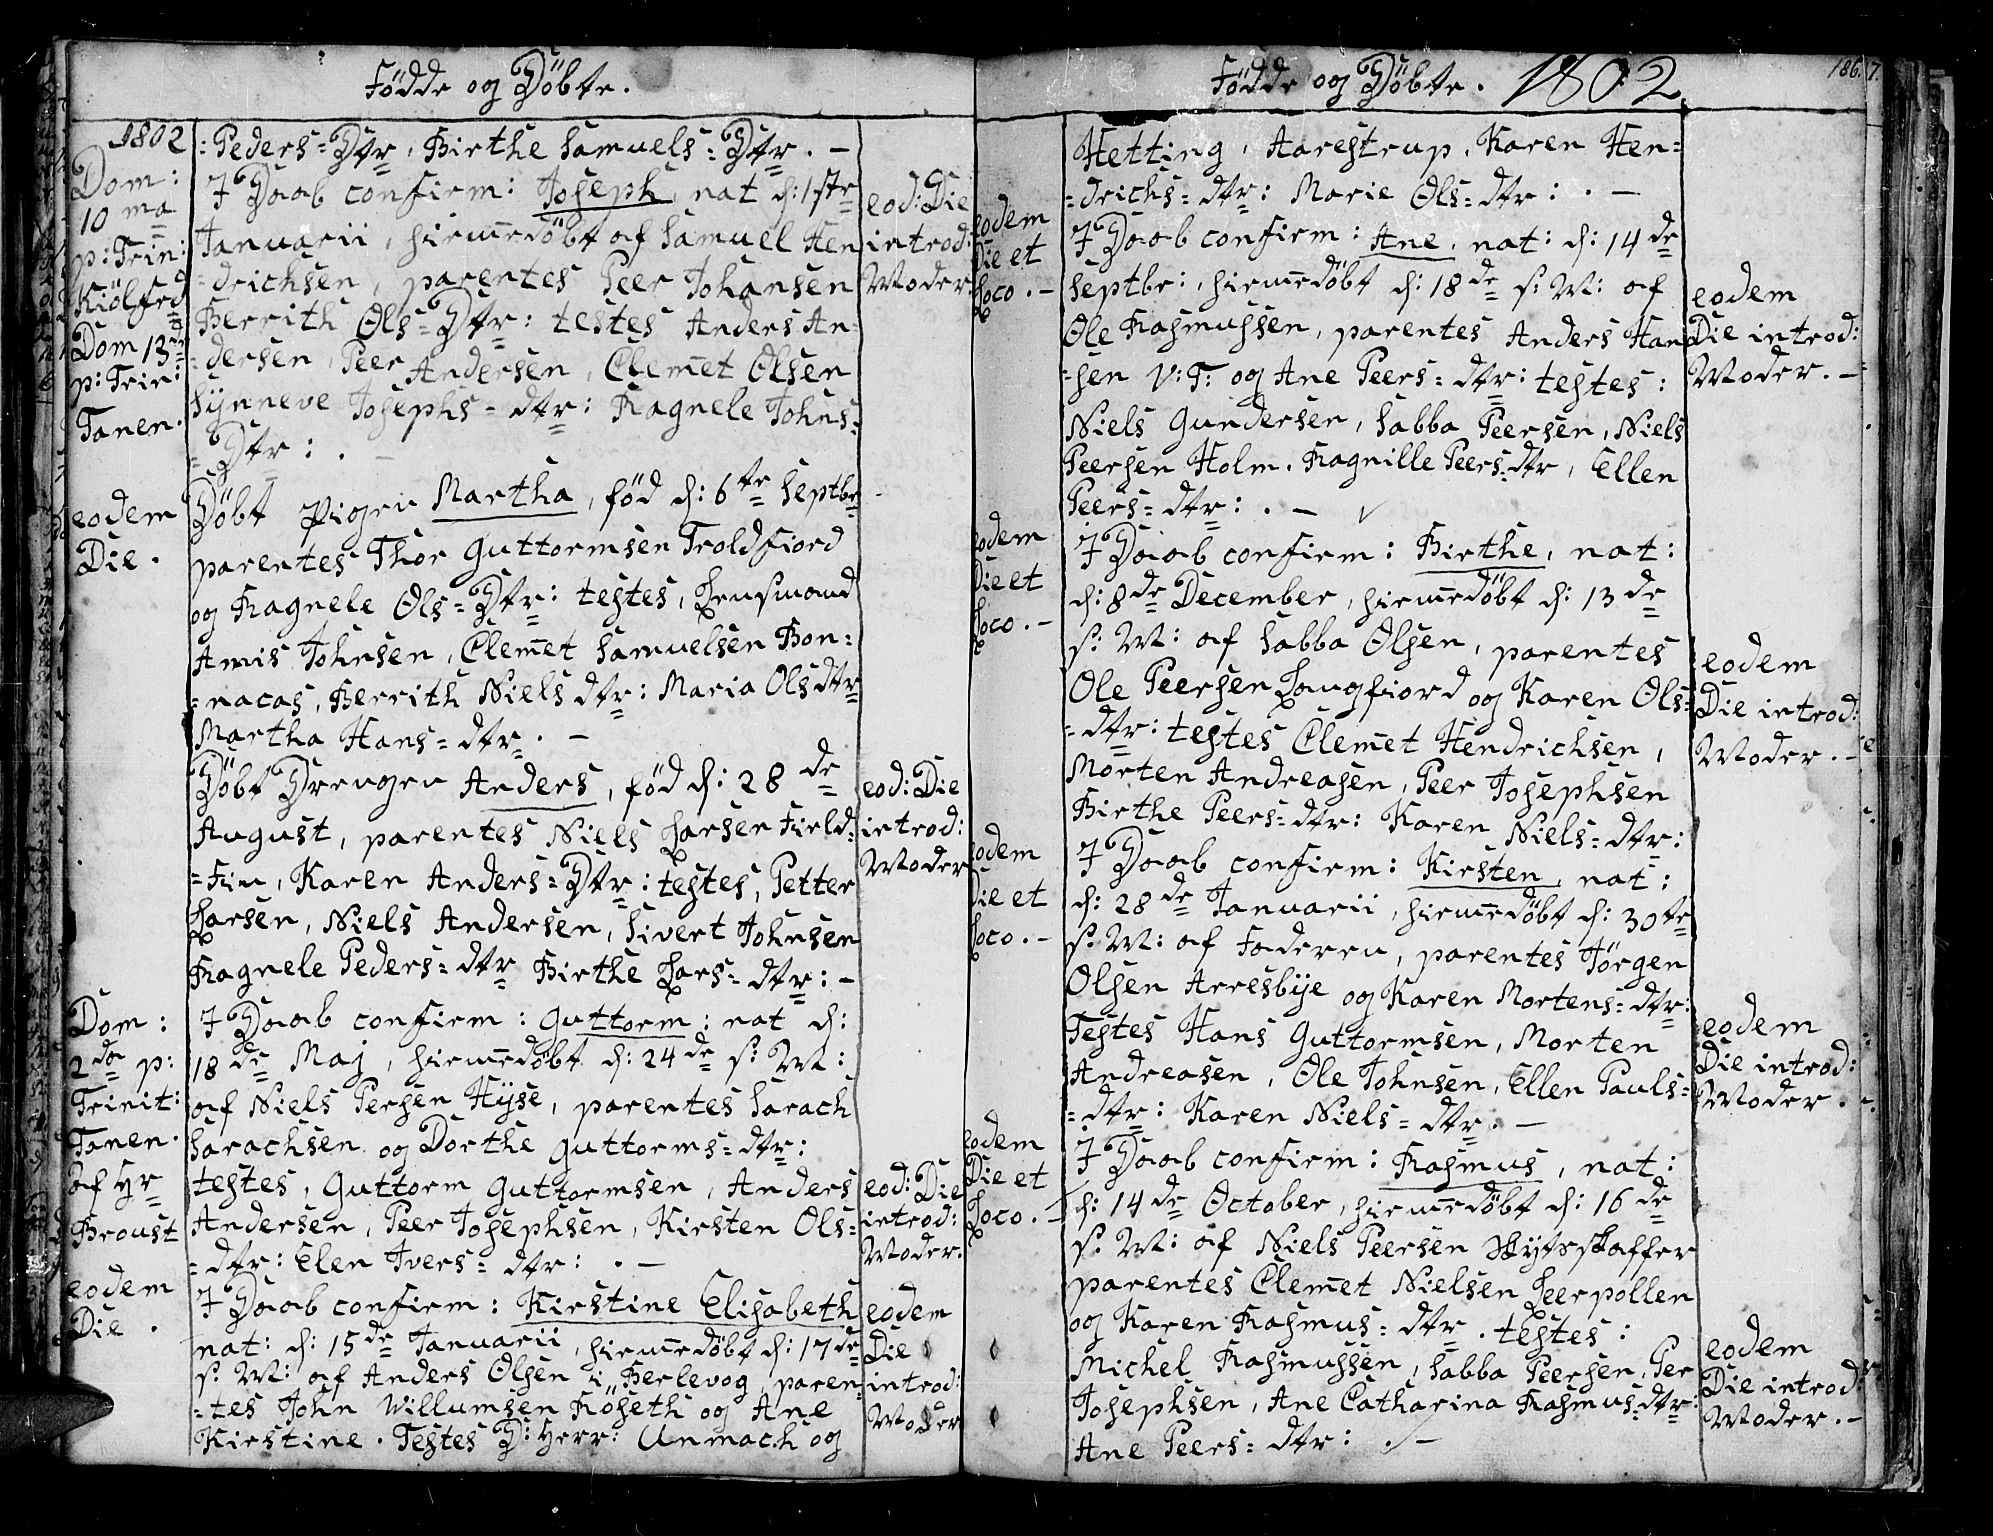 Födde og Döbte.
1802
: Peders= Dtr, Birthe Samuels= Dtr. -
Dom:
10 ma
p: Trin:
Kiölfrd
J Daab confirm: Joseph, nat d: 1ste
Januarii, hiemedöbt af Samuel Hen
=drichsen, parentes Peer Johansen
Berrith Ols= Dtr: testes Anders An=
=dersen, Peer Andersen, Clemet Olsen
Synneve Josephs= dtr: Ragnele Johns=
=Dtr: . -
eod: Die
introd:
Moder
Dom 13de
p: Trin:
Tanen.
eodem
Die.
Döbt Pigen Martha, föd d: 6te Septbr
parentes Thor Guttormsen Troldfiord
og Ragnele Ols= Dtr: testes, Lensmand
Amis Johnsen, Clemet Samuelsen Bon=
=nacas, Berrith Niels dtr: Maria Ols dtr
Martha Hans= dtr. -
Döbt Drengen Anders, föd d: 28 de
August, parentes Niels Larsen Field=
=Fin, Karen Anders= Dtr: testes, Petter
Larsen, Niels Andersen, Sivert Johnsen
Ragnele Peders= dtr Birthe Lars= dtr: -
eod: Die
introd:
Moder
Dom:
2da p:
Trinit:
Tanen.
af Hr
Broust
J Daab confirm: Guttorm: nat d:
18 de Maj, hiemedöbt d: 24 de s: M:
af Niels Persen Hyse, parentes Sarach
Sarachsen og Dorthe Guttorms= dtr:
testes, Guttorm Guttormsen, Anders
Andersen, Peer Josephsen, Kirsten Ols=
=dtr: Elen Ivers= dtr: . -
eod: Die
introd:
Moder.
eodem
Die.
J Daab confirm: Kirstine Elisabeth
nat: d: 15 de Januarii, hiemedöbt d: 17 de
s: M: af Anders Olsen i Berlevog, paren=
=tes John Willumsen Röseth og Ane
Kirstine. Testes D: Herr: Unmach og
eodem
Die
introd:
Moder
Födde og Döbte. 1802
186. 7.
Hetting, Aarestrup, Karen Hen=
=drichs= dtr: Marie Ols= dtr: . -
eodem
Die et
Loco. -
J Daab confirm: Ane, nat: d: 14 de
Septbr:, hiemedöbt d: 18 de s: M: af
Ole Rasmussen, parentes Anders Han
=sen V: F: og Ane Peers= dtr: testes:
Niels Gundersen, Sabba Peersen, Niels
Peersen Holm. Ragnille Peers= dtr, Ellen
Peers= dtr: . -
eodem
Die introd:
Moder. -
eodem
Die et
Loco. -
J Daab confirm: Birthe, nat:
d: 8de December, hiemedöbt d: 13 de
s: M: af Sabba Olsen, parentes
Ole Peersen Langfiord og Karen Ols=
=dtr: testes Clemet Hendrichsen,
Morten Andreasen, Peer Josephsen
Birthe Peers= dtr: Karen Niels= dtr:
eodem
Die introd:
Moder. -
eodem
Die et
Loco. -
J Daab confirm: Kirsten, nat:
d: 28 de Januarii, hiemedöbt d: 30te
s: M: af Faderen, parentes Jörgen
Olsen Arresbye og Karen Mortens= dtr:
Testes Hans Guttormsen, Morten
Andreasen, Ole Johnsen, Ellen Pauls=
=dtr: Karen Niels= dtr. -
eodem
Die introd:
Moder.
eodem
Die et
Loco. -
J Daab confirm: Rasmus, nat:
d: 14 de October, hiemedöbt d: 16 de
s: M: af Niels Peersen Skytsskaffer
parentes Clemet Nielsen Leerpollen
og Karen Rasmus= dtr. testes:
Michel Rasmussen, Sabba Peersen, Per
Josephsen, Ane Catharina Rasmus= dtr:
Ane Peers= dtr: . -
eodem
Die introd:
Moder. -